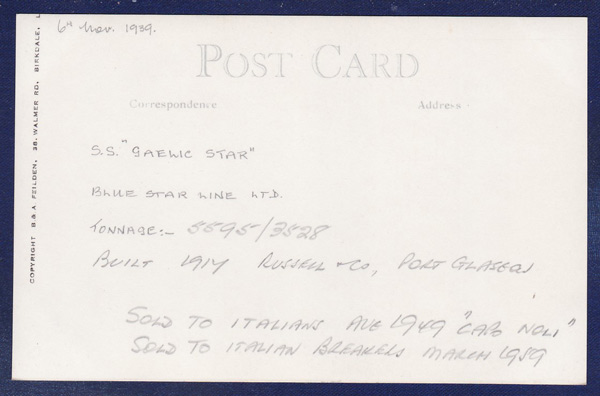 6th Nov. 1939.
POST CARD
Correspondence
Address
S.S. "GAELIC STAR"
BLUE STAR LINE LTD.
TONNAGE:- 5595/3528
BUILT 1917 RUSSELL & CO, PORT GLASGOW
SOLD TO ITALIANS AUG 1949 "CAPO NOLI"
SOLD TO ITALIAN BREAKERS MARCH 1959
COPYRIGHT B & A FEILDEN, 38, WALMER RD, BIRKDALE,